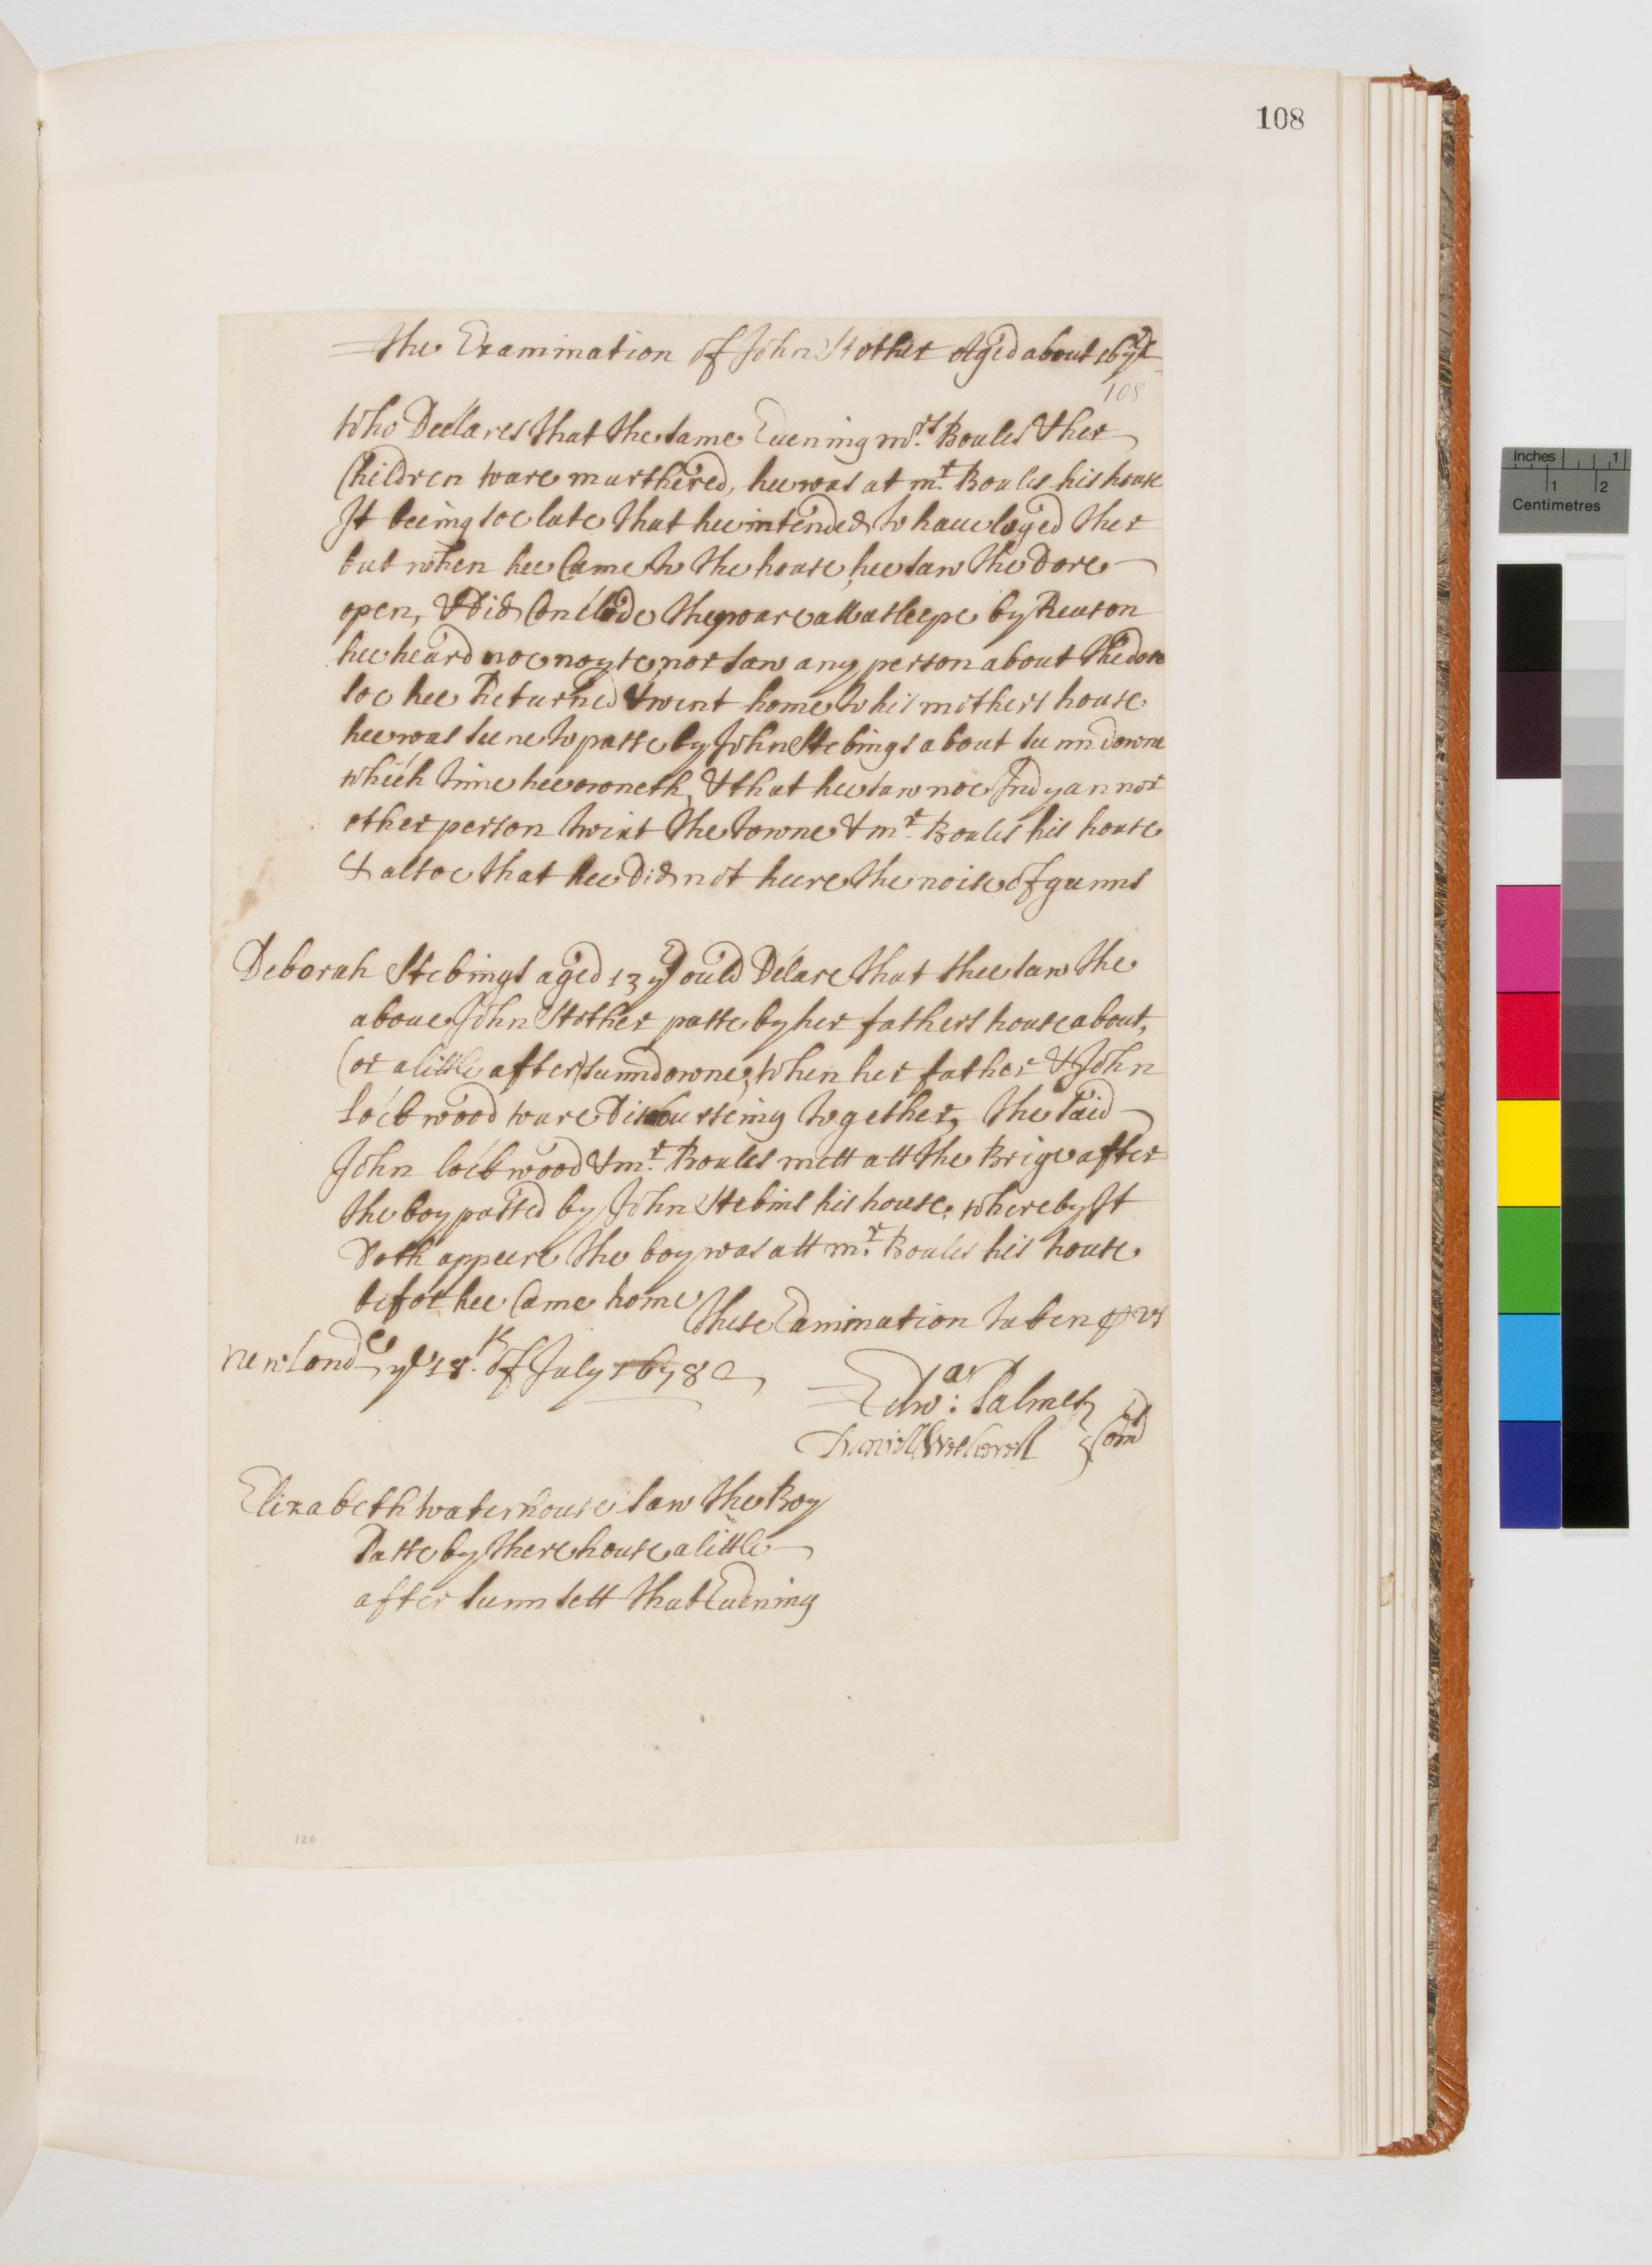 108
The Examination of John Stother Aged about 16 yr
108
who Declares that the same Euening mrs Boules & her
Children ware murthered, hee was at mr Boules his house
It beeing soe late that hee intended to haue loged ther
but when hee Came to the house, hee saw the Dore
open, & Did Conclode they ware all asleepe by Reason
hee heard noe noyse, nor saw any person about the dore
soe hee Returned & went home to his mothers house
hee was seene to passe by John Stebings about sunn downe
which time hee owneth, & that hee saw noe Indyan nor
other person twixt the towne & mr Boules his house
& alsoe that hee Did not heere the noise of gunns
Deborah Stebings aged 13 y ould Delare that shee saw the
aboue John Stother passe by her fathers house about,
(or a little after) sunndowne, when her father & John
Lockwood ware Discourseing together, the said
John lockwood & mr Boules mett att the Brige after
the boy passed by John Stebins his house, whereby It
Doth appeere the boy was att mr Boules his house
befor hee Came home
these Examination taken p us
new Lond ye 18th of July 1678
Edwar: Palmes
Daniell Wetherell } Comd
Elizabeth waterhouse saw the Boy
Passe by there house a little
after sunn sett that Euening
120
Inches 1
1 2
Centimetres